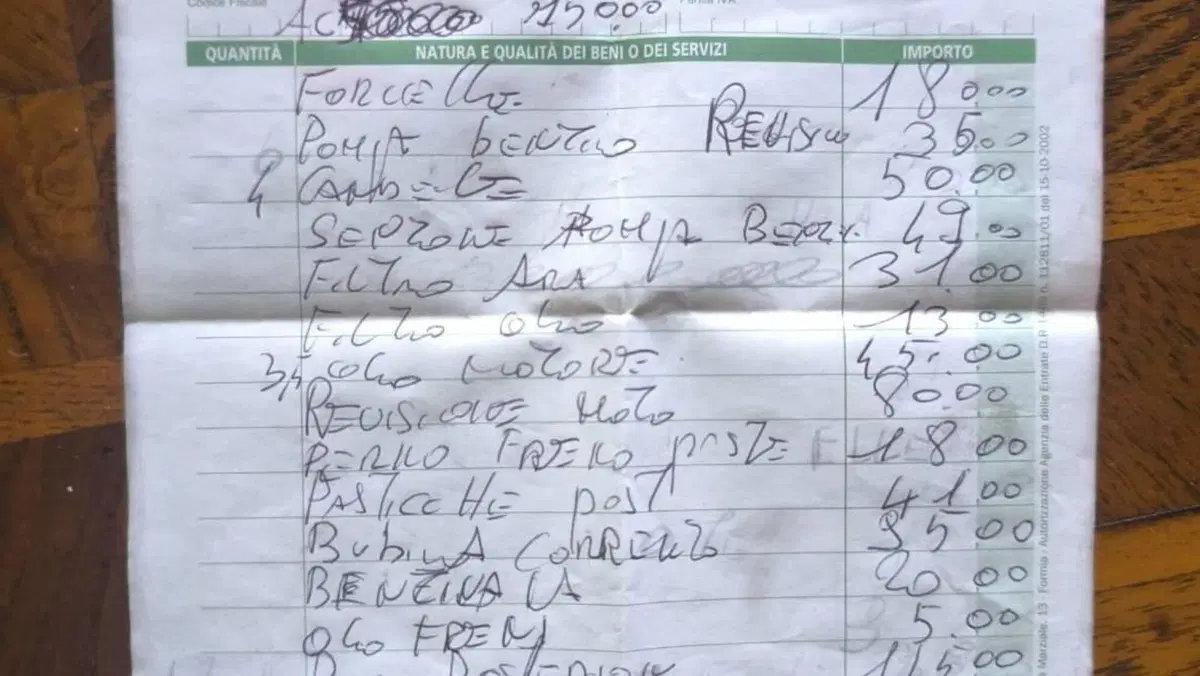 Codice Fiscale Partita IVA
AC 15.000
QUANTITÀ NATURA E QUALITÀ DEI BENI O DEI SERVIZI IMPORTO
FORCELLE 180.00
POMPA BENZINA REVISION 35.00
4 CANDELE 50.00
POMPA BENZ. 49.00
FILTRO ARIA 31.00
FILTRO OLIO 13.00
3,5 OLIO MOTORE 45.00
REVISIONE MOTO 80.00
PERNO FRENO POSTE 18.00
PASTICCHE POST 41.00
BUBINA CORRENTE 35.00
BENZINA 20.00
OLIO FRENI 5.00
115.00
Marziale, 13 - Formia - Autorizzazione Agenzia delle Entrate D.R. Lazio n. 112811/01 del 15-10-2002